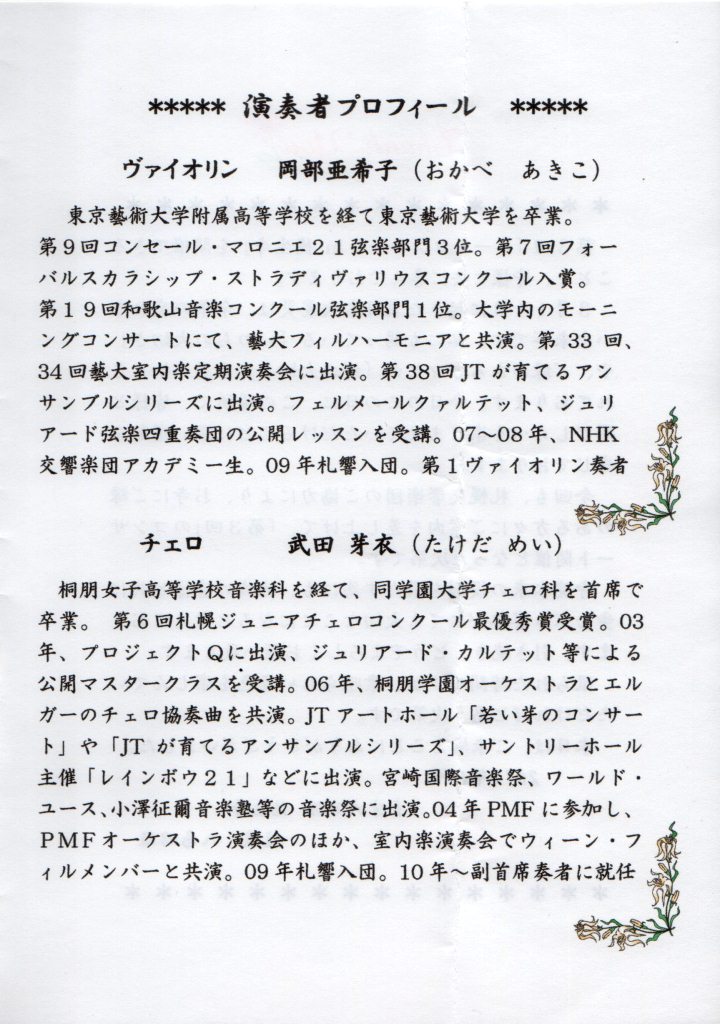 ***** 演奏者プロフィール *****
ヴァイオリン 岡部亜希子(おかべ あきこ)
東京藝術大学附属高等学校を経て東京藝術大学を卒業。
第9回コンセール・マロニエ21弦楽部門3位。第7回フォー
バルスカラシップ・ストラディヴァリウスコンクール入賞。
第19回和歌山音楽コンクール弦楽部門1位。大学内のモーニ
ングコンサートにて、藝大フィルハーモニアと共演。第33回、
34回藝大室内楽定期演奏会に出演。第38回JTが育てるアン
サンブルシリーズに出演。フェルメールクァルテット、ジュリ
アード弦楽四重奏団の公開レッスンを受講。07~08年、NHK
交響楽団アカデミー生。09年札響入団。第1ヴァイオリン奏者
チェロ 武田 芽衣(たけだ めい)
桐朋女子高等学校音楽科を経て、同学園大学チェロ科を首席で
卒業。 第6回札幌ジュニアチェロコンクール最優秀賞受賞。03
年、プロジェクトQに出演、ジュリアード・カルテット等による
公開マスタークラスを受講。06年、桐朋学園オーケストラとエル
ガーのチェロ協奏曲を共演。JTアートホール「若い芽のコンサー
ト」や「JTが育てるアンサンブルシリーズ」、サントリーホール
主催「レインボウ21」などに出演。宮崎国際音楽祭、ワールド・
ユース、小澤征爾音楽塾等の音楽祭に出演。04年PMFに参加し、
PMFオーケストラ演奏会のほか、室内楽演奏会でウィーン・フ
ィルメンバーと共演。09年札響入団。10年~副首席奏者に就任